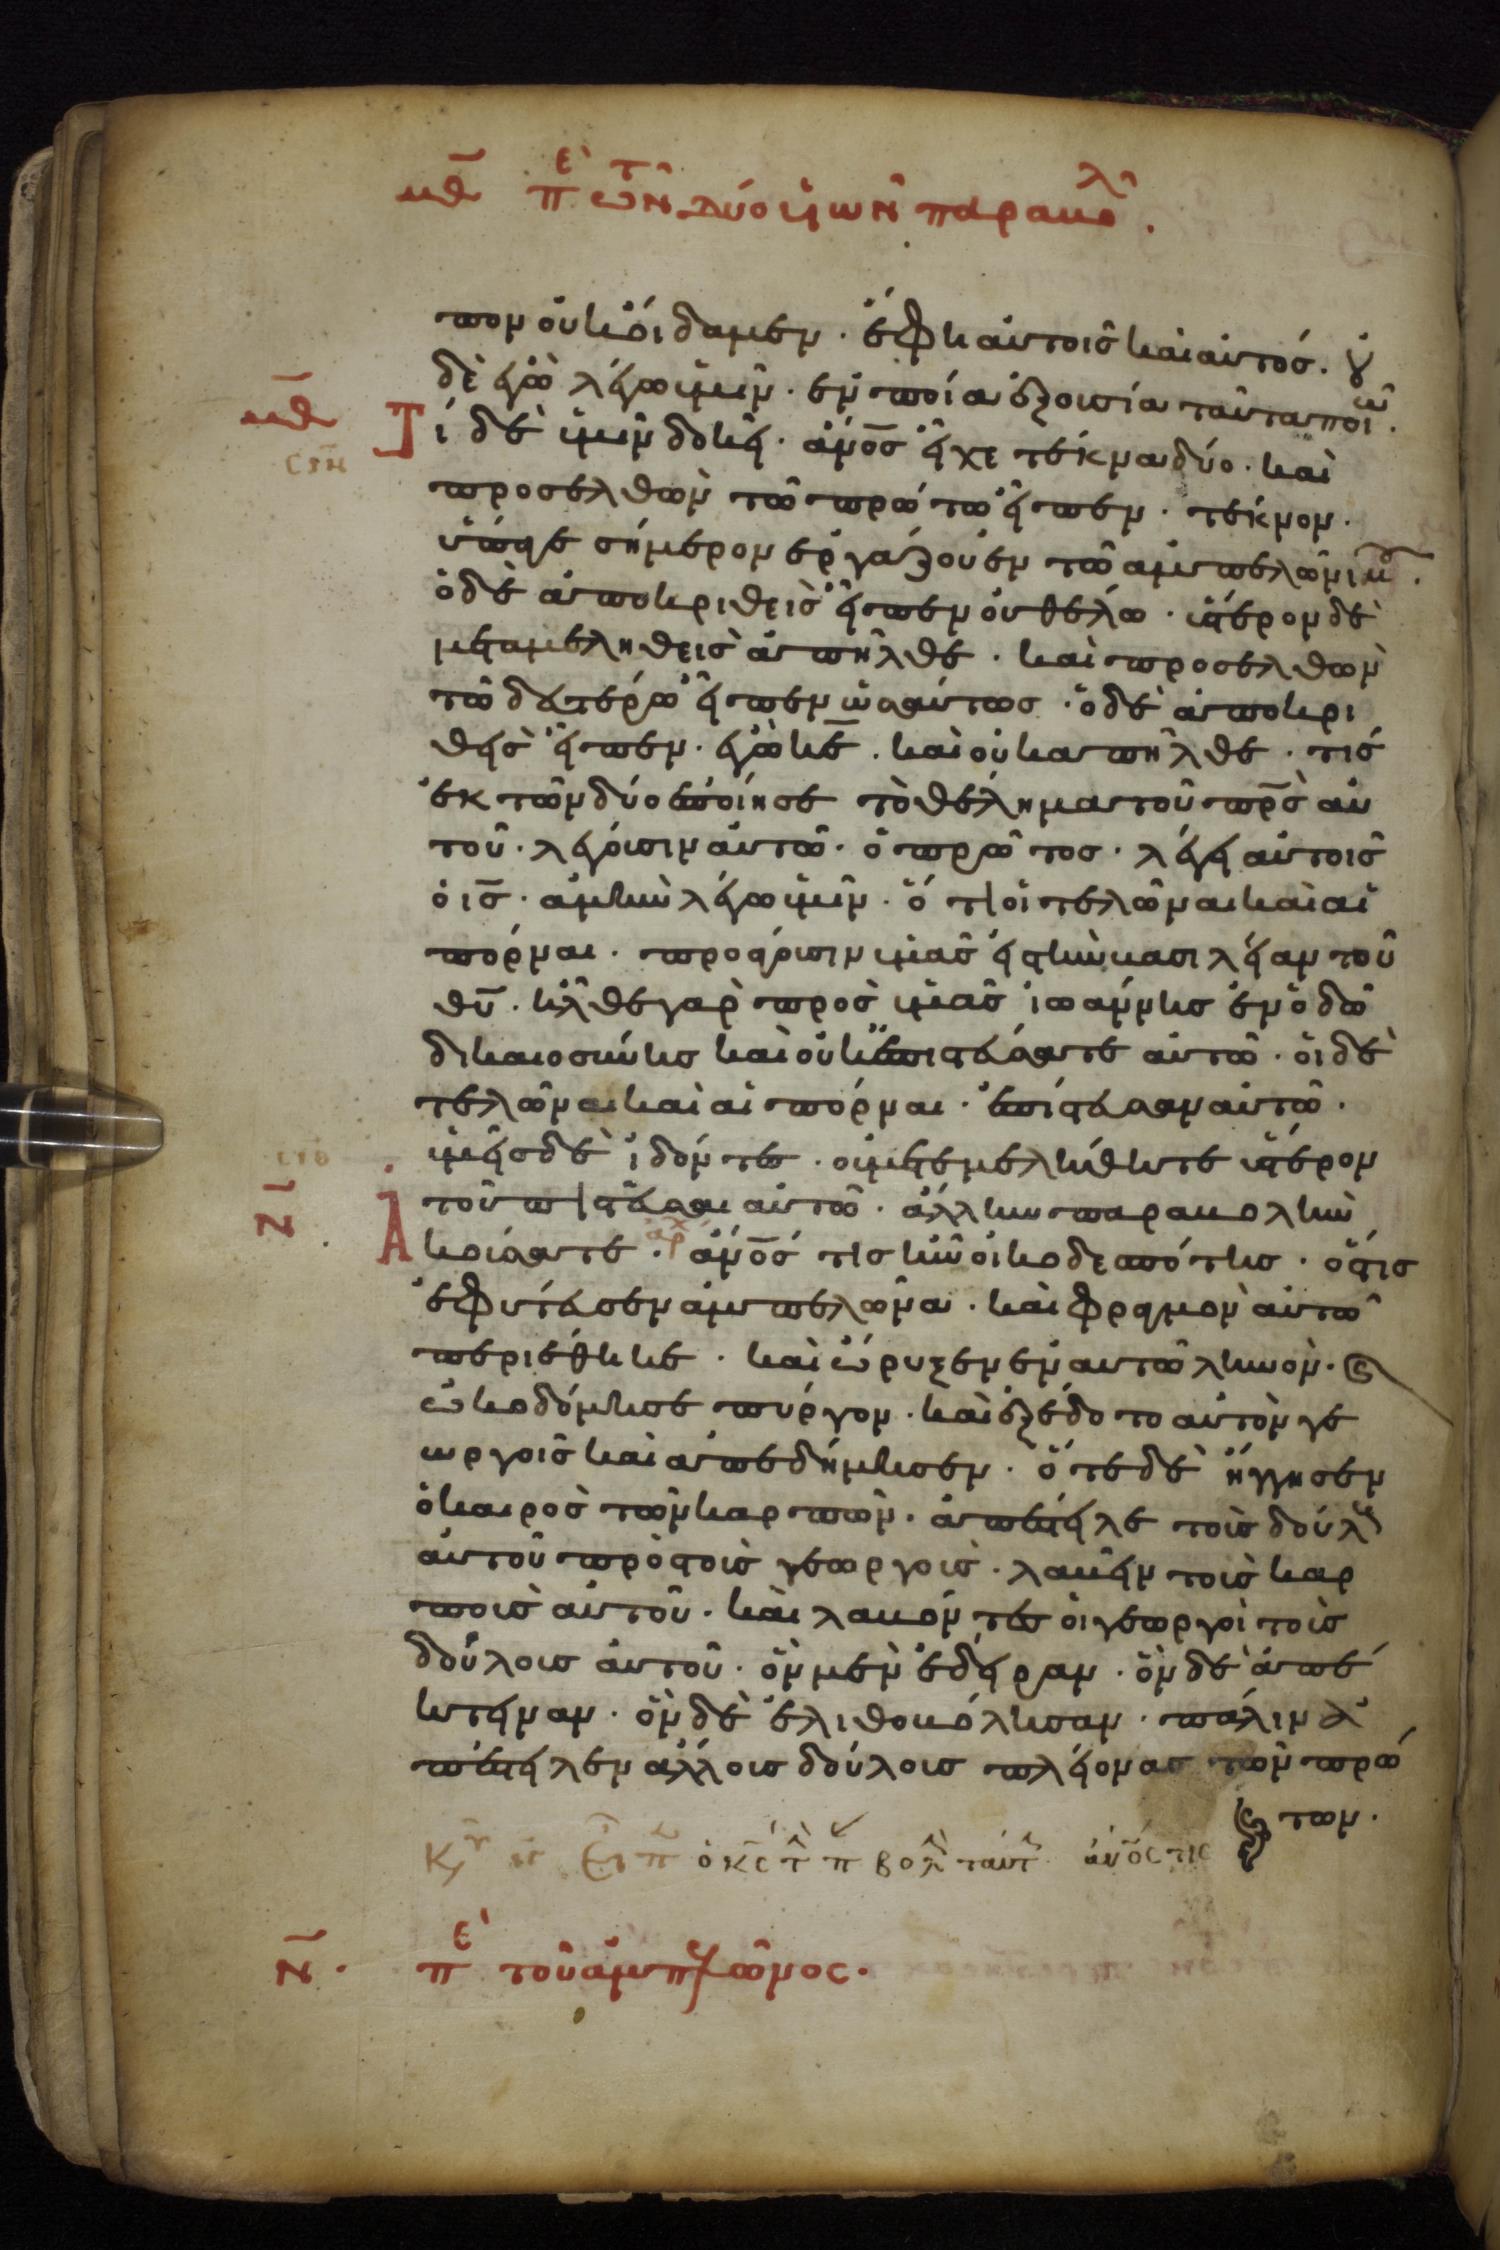 μθ π̅ε τῶν δύο υἱῶν παραβολ
πον οὐκ οἴδαμεν. ἔφη αὐτοῖς καὶ αὐτός. οὐ
δὲ ἐγὼ λέγω ὑμῖν. ἐν ποία ἐξουσία ταῦτα ποιῶ.
μθ Τί δὲ ὑμῖν δοκεῖ. ἄν̅ος εἶχε τέκνα δύο. καὶ
προσελθὼν τῶ πρώτω εἶπεν. τέκνον.
ὕπαγε σήμερον ἐργάζου ἐν τῶ ἀμπελῶνι μου.
ὁ δὲ ἀποκριθεὶς εἶπεν οὐ θέλω. ὕστερον δὲ
μεταμεληθεὶς ἀπῆλθε. καὶ προσελθὼν
τῶ δευτέρω εἶπεν ὡσαύτως. ὁ δὲ ἀποκρι
θεὶς εἶπεν. ἐγὼ κ̅ε. καὶ οὐκ ἀπῆλθε. τίς
ἐκ τῶν δύο ἐποίησε τὸ θέλημα τοῦ π̅ρς αὐ
τοῦ. λέγουσιν αὐτῶ. ὁ πρῶτος. λέγει αὐτοῖς
ὁ ι̅ς. ἀμὴν λέγω ὑμῖν. ὅτι οἱ τελῶναι καὶ αἱ
πόρναι. προάγουσιν ὑμᾶς εἰς τὴν βασιλείαν τοῦ
θ̅υ. ἦλθε γὰρ πρὸς ὑμᾶς ἰωάννης ἐν ὁδῶ
δικαιοσύνης καὶ οὐκ ἐπιστεύσατε αὐτῶ. οἱ δὲ
τελῶναι καὶ αἱ πόρναι. ἐπίστευσαν αὐτῶ.
ὑμεῖς δὲ ἰδόντες. οὐ μετεμελήθητε ὕστερον
ν̅ τοῦ πιστεῦσαι αὐτῶ. ἄλλην παραβολὴν
Ἀκούσατε. ἄν̅ος τις ἦν οἰκοδεσπότης. ὅστις
ἐφύτευσεν ἀμπελῶνα. καὶ φραγμὸν αὐτῶ
περιέθηκε. καὶ ὤρυξεν ἐν αὐτῶ ληνόν. καὶ
ὠκοδόμησε πύργον. καὶ ἐξέδοτο αὐτὸν γε
ωργοῖς καὶ ἀπεδήμησεν. ὅτε δὲ ἤγγησεν
ὁ καιρὸς τῶν καρπῶν. ἀπέστειλε τοὺς δούλους
αὐτοῦ πρὸς τοὺς γεωργούς. λαβεῖν τοὺς καρ
ποὺς αὐτοῦ. καὶ λαβόντες οἱ γεωργοὶ τοὺς
δούλους αὐτοῦ. ὃν μὲν ἔδειραν. ὃν δὲ ἀπέ
κτειναν. ὃν δὲ ἐλιθοβόλησαν. πάλιν ἀ
πέστειλεν ἄλλους δούλους πλείονας τῶν πρώ
των.
ὁ κ̅ς τ π βολ ταύτ ἄν̅ος τις
ν̅. π̅ε τοῦ ἀμπελῶνος.